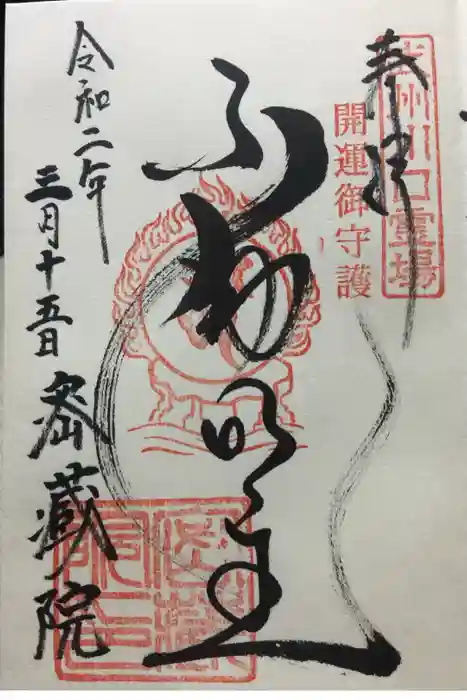 奉拝
武州川口霊場
開運御守護
不動明王
令和二年
三月十五日
密蔵院
密蔵院印